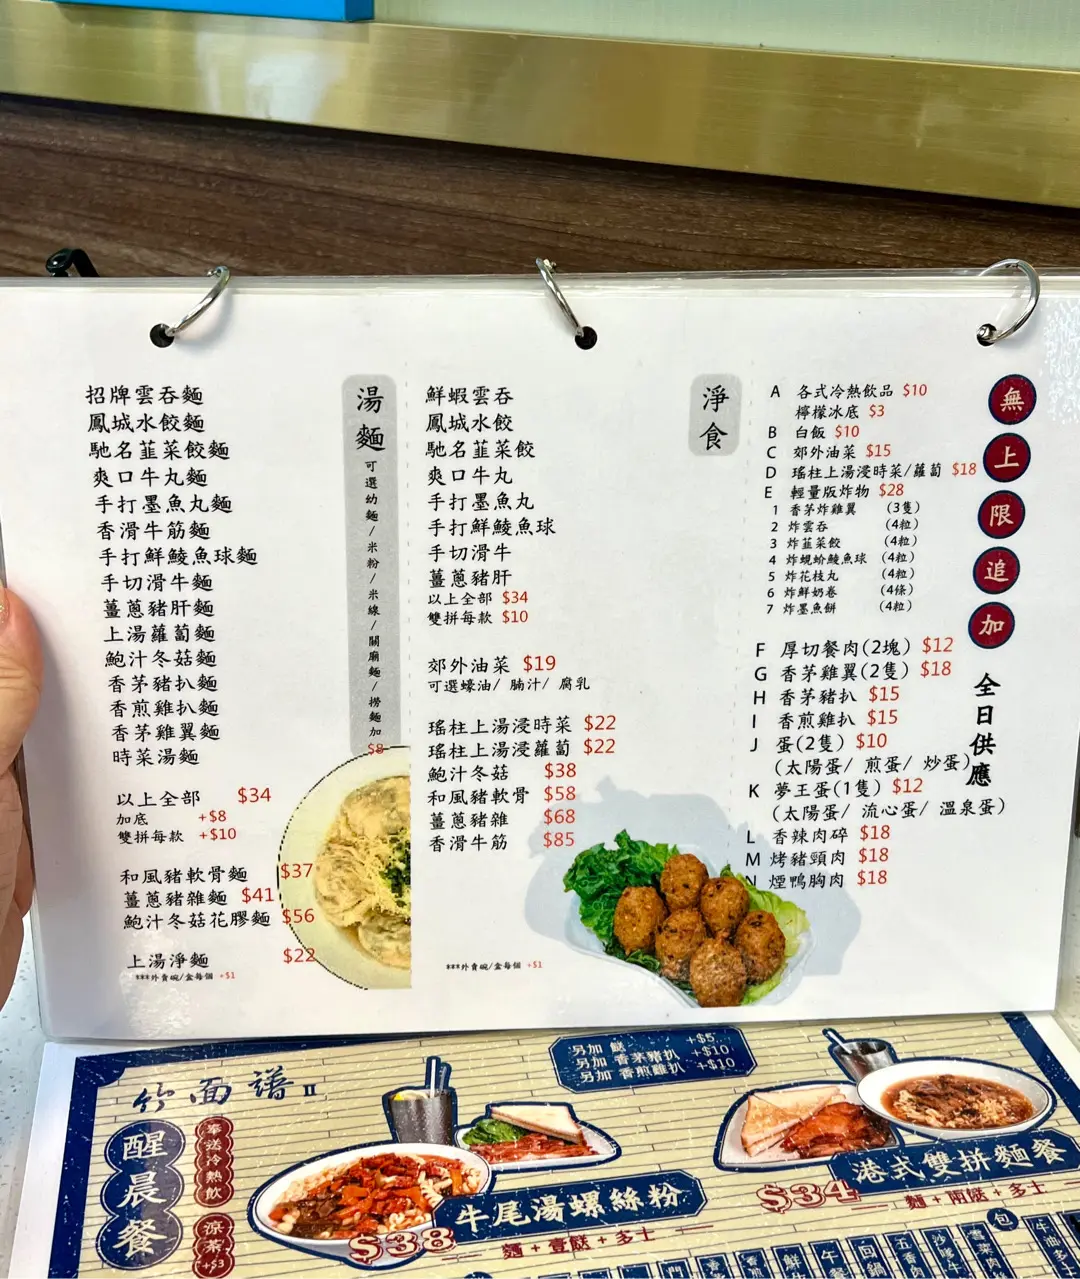 湯麵
可選幼麵/米粉/米線/關廟麵/撈麵加
$8
招牌雲吞麵
鳳城水餃麵
馳名韮菜餃麵
爽口牛丸麵
手打墨魚丸麵
香滑牛筋麵
手打鮮鯪魚球麵
手切滑牛麵
薑蔥豬肝麵
上湯蘿蔔麵
鮑汁冬菇麵
香茅豬扒麵
香煎雞扒麵
香茅雞翼麵
時菜湯麵
以上全部 $34
加底 +$8
雙拼每款 +$10
和風豬軟骨麵 $37
薑蔥豬雜麵 $41
鮑汁冬菇花膠麵 $56
上湯淨麵 $22
***外賣碗/盒每個 +$1
淨食
鮮蝦雲吞
鳳城水餃
馳名韮菜餃
爽口牛丸
手打墨魚丸
手打鮮鯪魚球
手切滑牛
薑蔥豬肝
以上全部 $34
雙拼每款 $10
郊外油菜 $19
可選蠔油/ 腩汁/ 腐乳
瑤柱上湯浸時菜 $22
瑤柱上湯浸蘿蔔 $22
鮑汁冬菇 $38
和風豬軟骨 $58
薑蔥豬雜 $68
香滑牛筋 $85
***外賣碗/盒每個 +$1
無上限追加
全日供應
A 各式冷熱飲品 $10
檸檬冰底 $3
B 白飯 $10
C 郊外油菜 $15
D 瑤柱上湯浸時菜/蘿蔔 $18
E 輕量版炸物 $28
1 香茅炸雞翼 (3隻)
2 炸雲吞 (4粒)
3 炸韮菜餃 (4粒)
4 炸蜆蚧鯪魚球 (4粒)
5 炸花枝丸 (4粒)
6 炸鮮奶卷 (4條)
7 炸墨魚餅 (4粒)
F 厚切餐肉(2塊) $12
G 香茅雞翼(2隻) $18
H 香茅豬扒 $15
I 香煎雞扒 $15
J 蛋(2隻) $10
(太陽蛋/ 煎蛋/ 炒蛋)
K 夢王蛋(1隻) $12
(太陽蛋/ 流心蛋/ 溫泉蛋)
L 香辣肉碎 $18
M 烤豬頸肉 $18
N 煙鴨胸肉 $18
竹面譜 II
另加 餸 +$5
另加 香茅豬扒 +$10
另加 香煎雞扒 +$10
醒晨餐
奉送冷熱飲
涼茶+$3
牛尾湯螺絲粉
$38
麵+壹餸+多士
港式雙拼麵餐
$34
麵+兩餸+多士
包